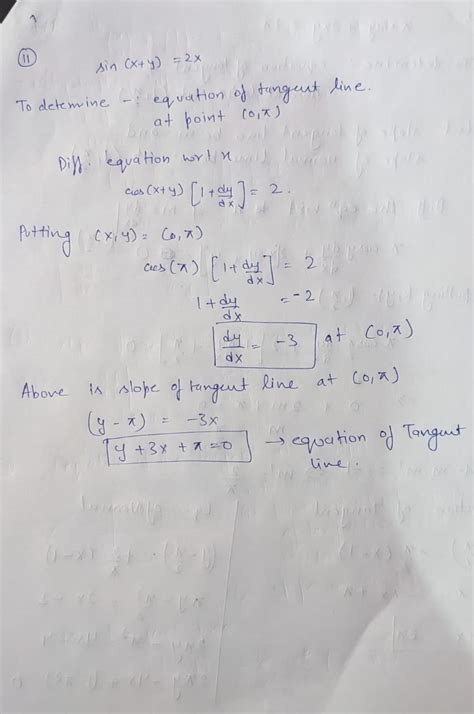 11
sin (x+y) = 2x
To detemine -: equation of tangent line.
at point (0,π)
Diff. equation wrt x
cos(x+y) [1+dy/dx] = 2.
Putting (x,y) = (0,π)
cos(π) [1+dy/dx] = 2
1+dy/dx = -2
dy/dx = -3 at (0,π)
Above is slope of tangent line at (0,π)
(y-π) = -3x
y+3x+π=0 → equation of Tangent
line.